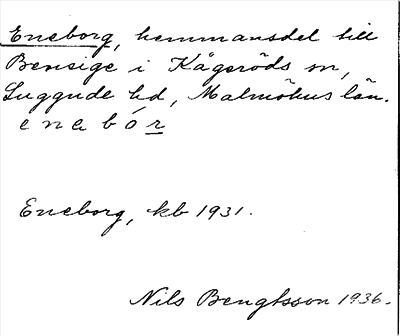 Eneborg, hemmansdel till
Bensige i Kågeröds sn,
Luggude hd, Malmöhus län.
e n a b ó r
Eneborg, kb 1931.
Nils Bengtsson 1936.